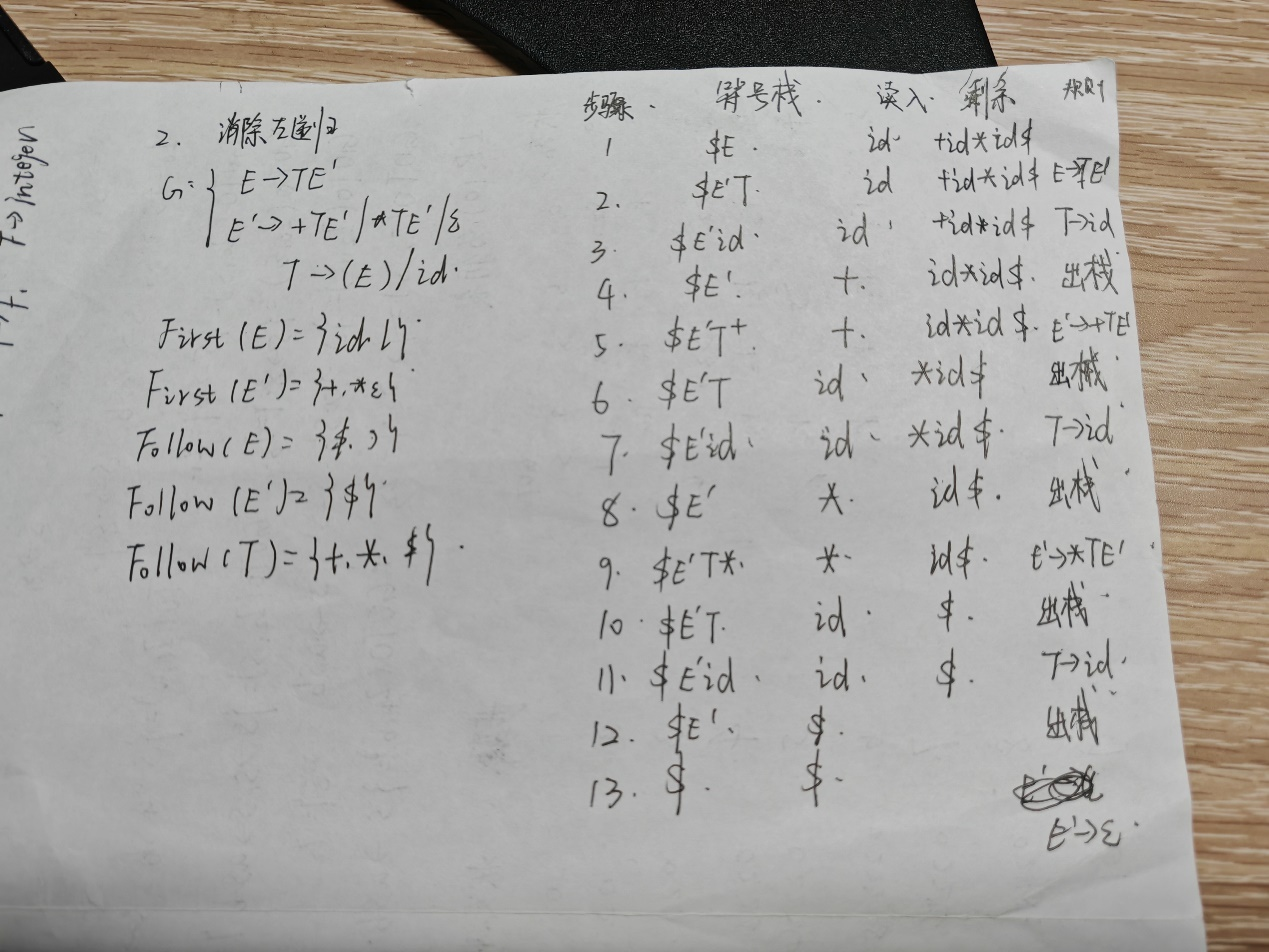 T→integer
2. 消除左递归
G: { E→TE'
E'→+TE'/*TE'/ε
T→(E)/id.
First(E)={id.(}.
First(E')={+.*ε}
Follow(E)={$.)}
Follow(E')={$}.
Follow(T)={+.*.$}.
步骤. 符号栈. 读入. 剩余 规则
1 $E. id. +id*id$
2. $E'T. id +id*id$ E→TE'
3. $E'id. id. +id*id$ T→id
4. $E'. +. id*id$. 出栈
5. $E'T+. +. id*id$. E'→+TE'
6. $E'T id. *id$ 出栈
7. $E'id. id. *id$. T→id
8. $E' *. id$. 出栈
9. $E'T*. *. id$. E'→*TE'
10. $E'T. id. $. 出栈
11. $E'id. id. $. T→id.
12. $E'. $. 出栈
13. $. $.
E'→ε.